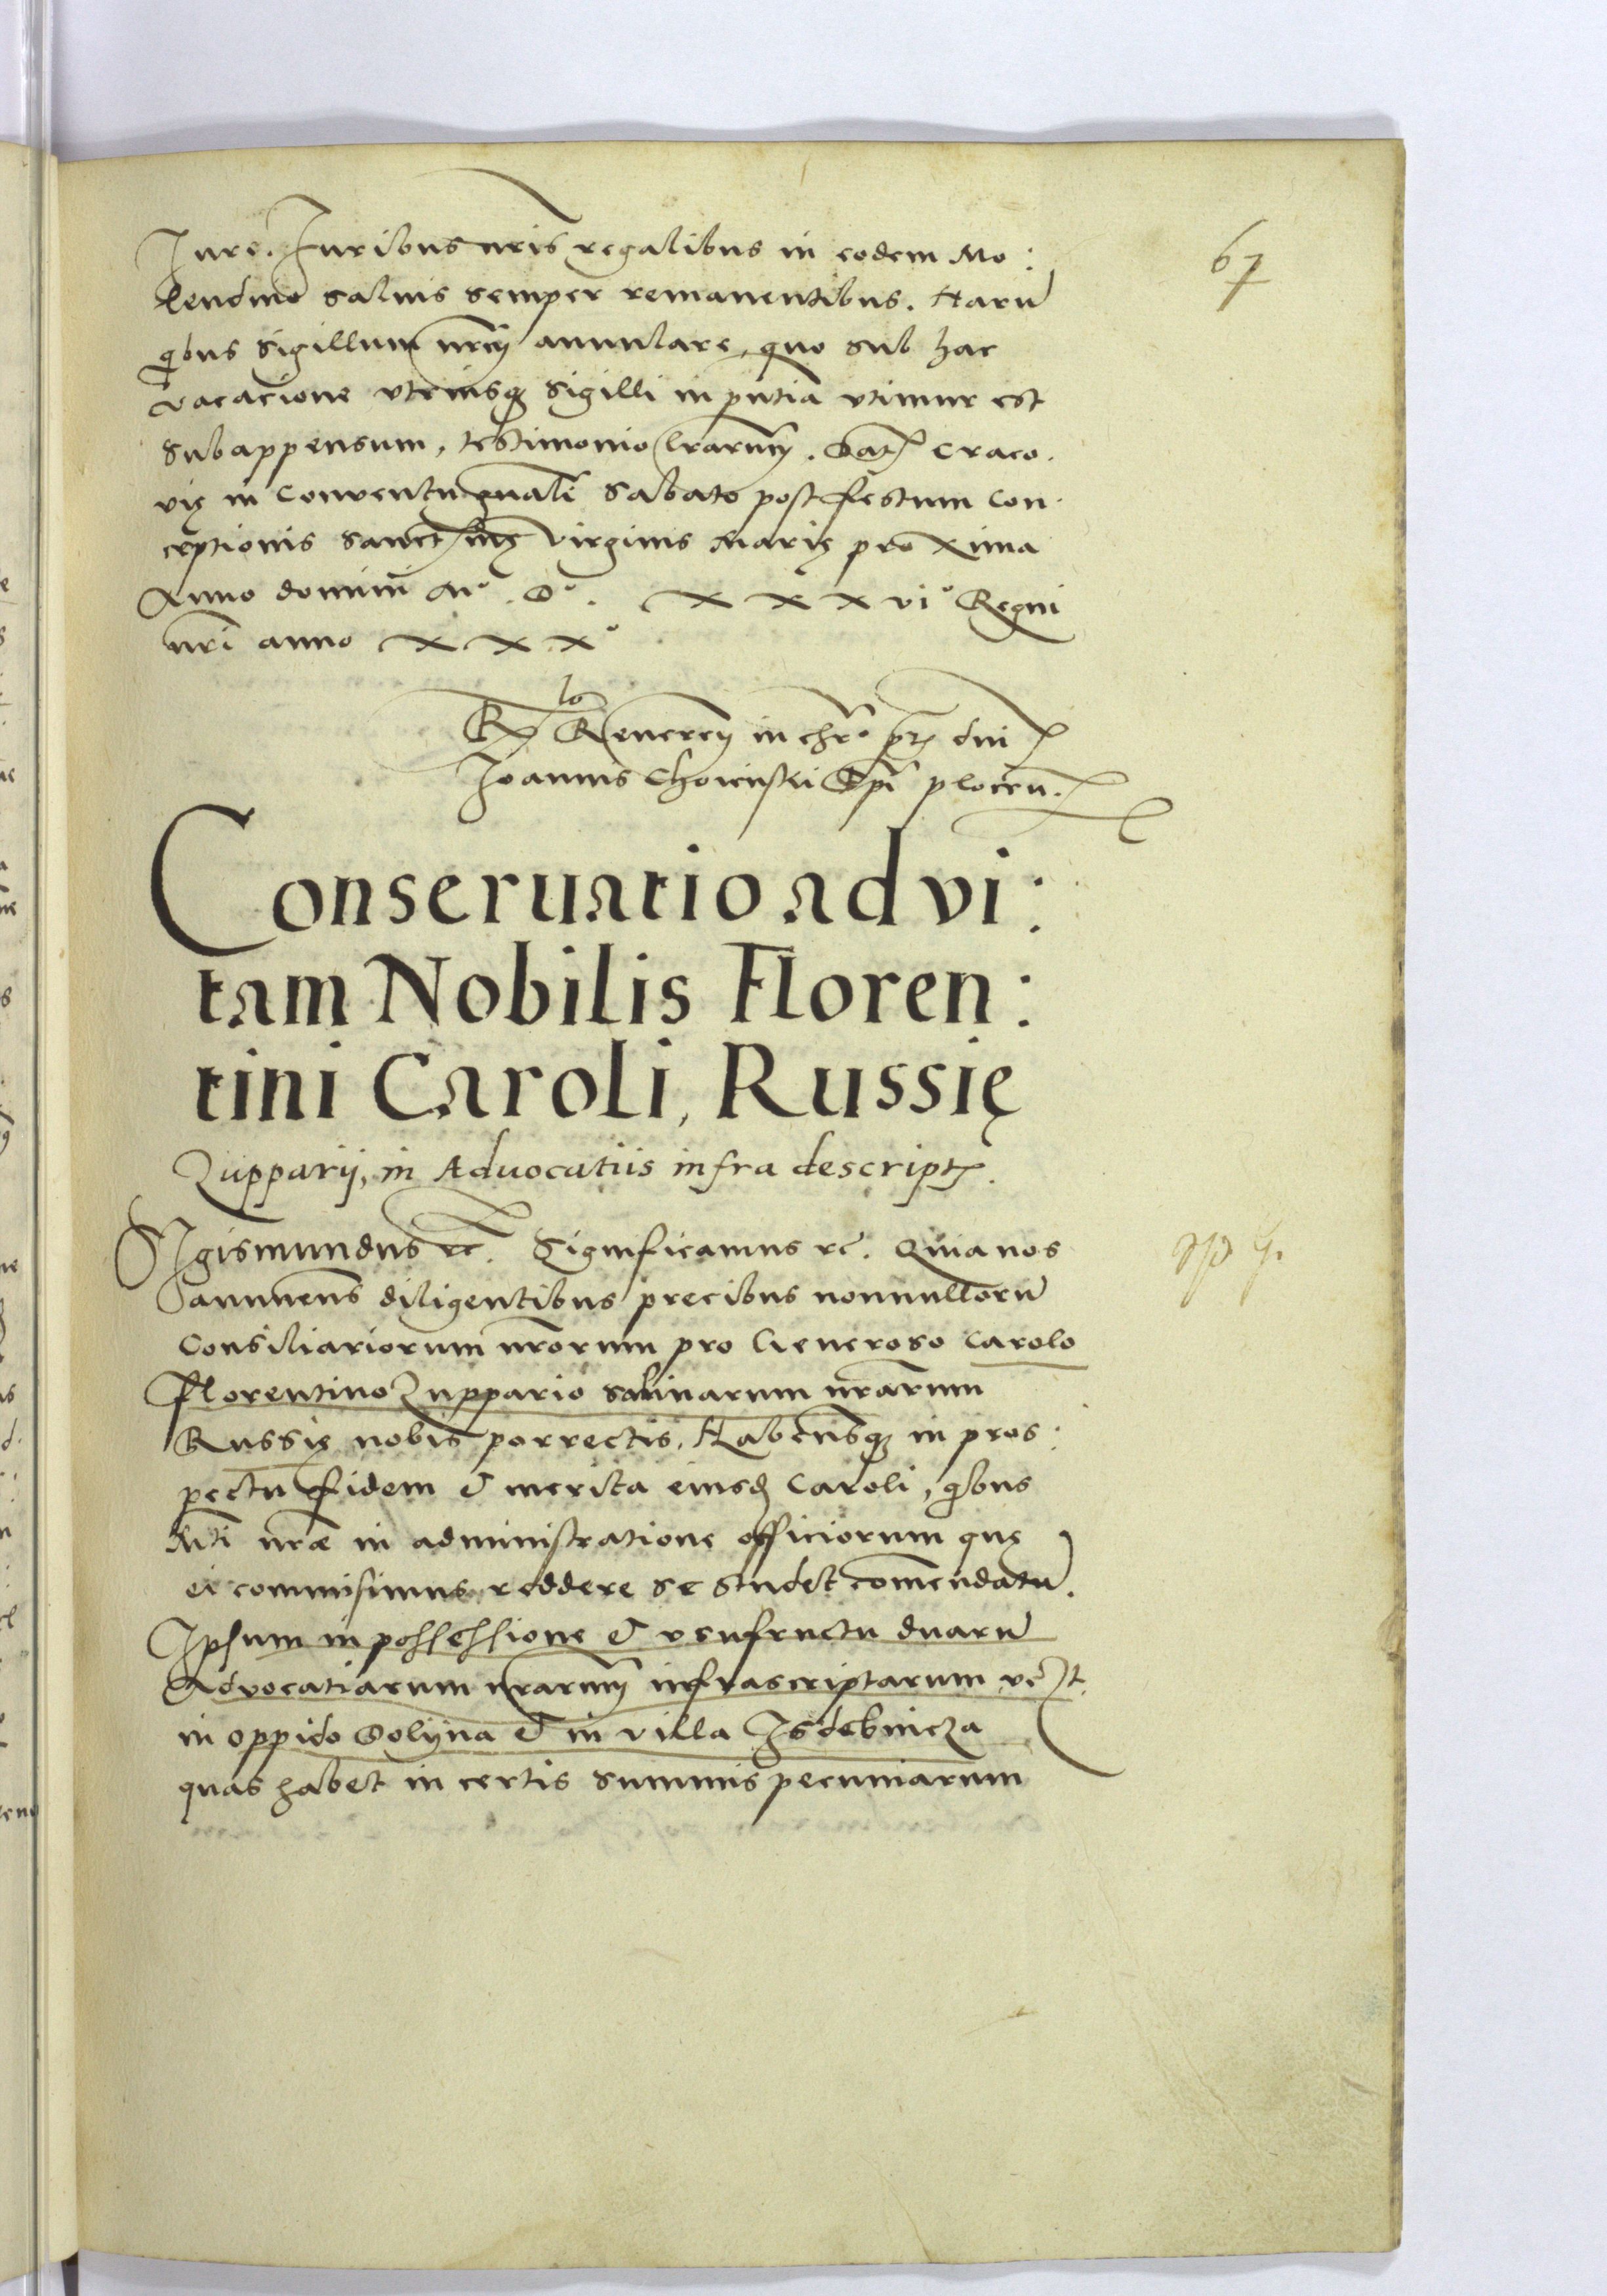 Jure. Juribus nris regalibus in eodem Mo:
lendino salvis semper remanentibus. Harũ
qibus sigillum nrm annulare, quo sub hac
vacacione utriusq sigilli in pntia utimur est
subappensum, testimonio lrarum. Dat Craco.
vię in Conventu gnali Sabato post festum Con.
ceptionis sanctme virginis Marię proxima
Anno domini Mº. Dº. xxxviº Regni
nri anno xxxº
Rlo Reveren in chrº pr dni
Joannis Choienski Epi plocen.
67
Conseruatio ad vi:
tam Nobilis Floren:
tini Caroli, Russię
Zupparij, in Aduocatiis infra descript.
Sigismundus rc. Significamus rc. Quia nos
annuens diligentibus precibus nonnullorũ
Consiliariorum nrorum pro Generoso Carolo
Florentino Zuppario salinarum nrarum
Russię nobis porrectis. Habensq in pros:
pectu fidem & merita eiusd Caroli, qibus
Mti nræ in administratione officiorum quę
ei commisimus reddere se studet comendatũ.
Ipsum in possessione & usufructu duarũ
Advocatiarum nrarum infrascriptarum vt
in oppido Dolyna & in villa Jsdebnicza
quas habet in certis summis pecuniarum